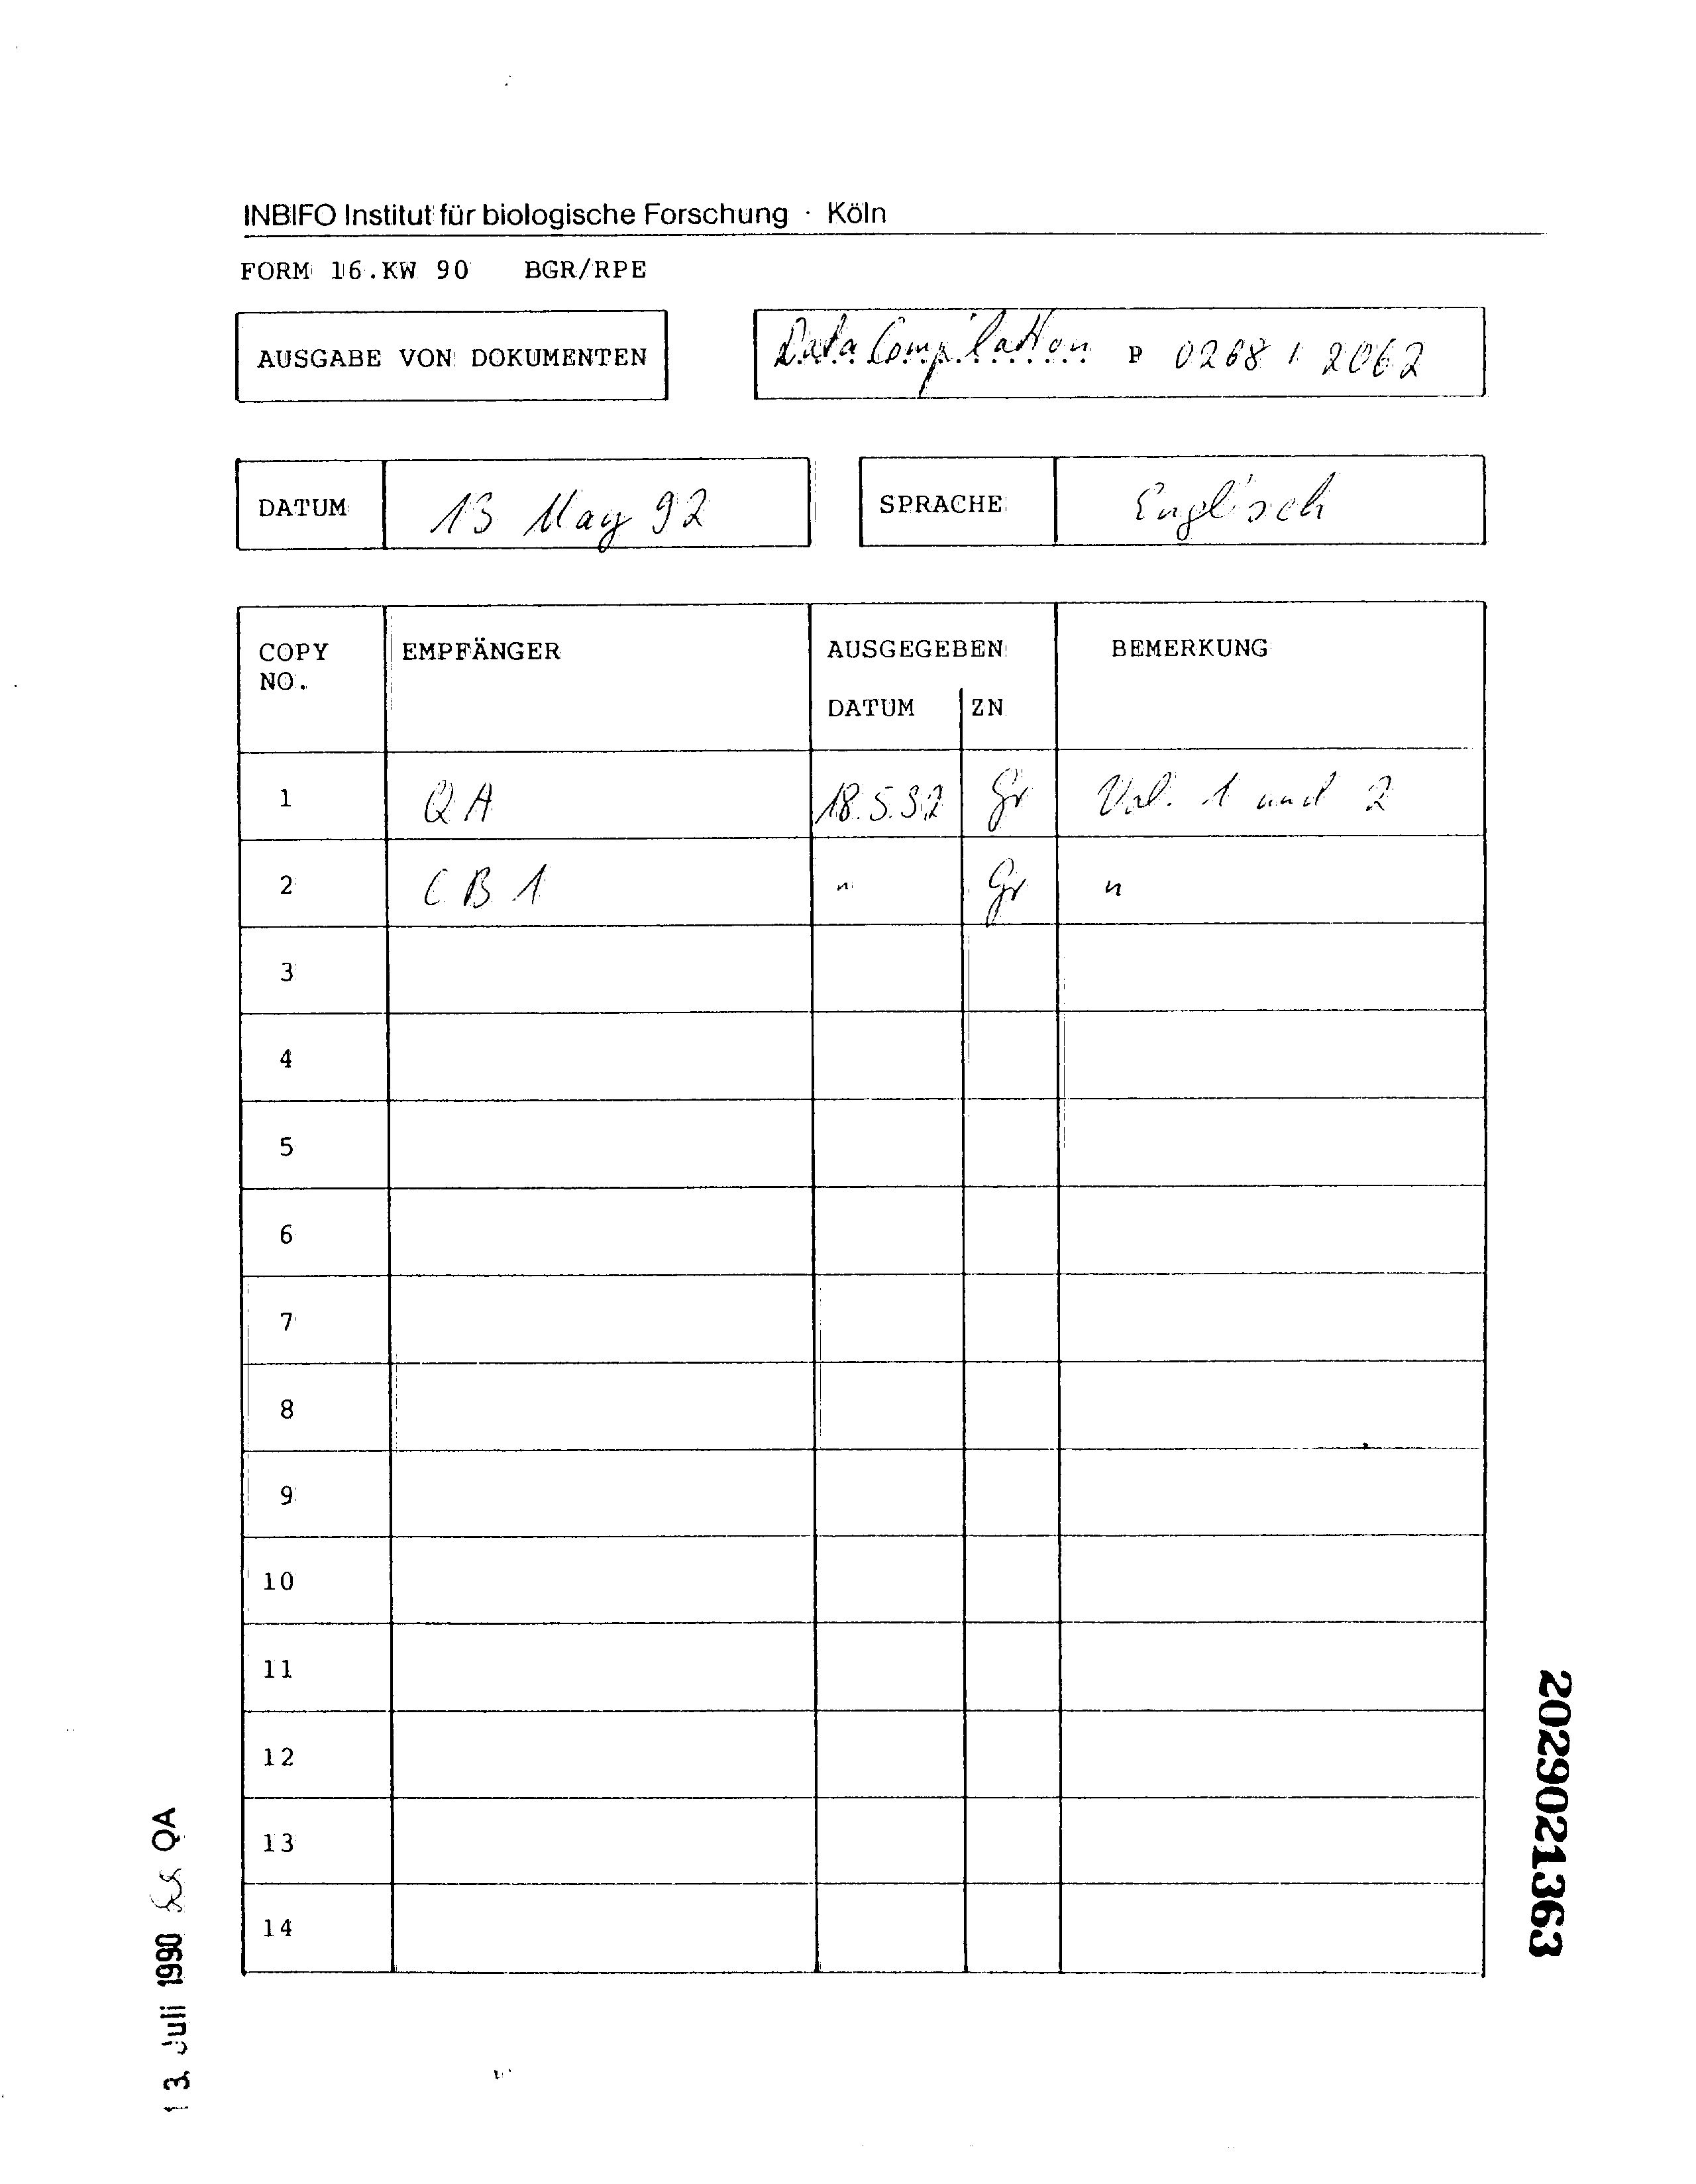 INBIFO Institut für biologische Forschung · Köln
FORM 16.KW 90 BGR/RPE
AUSGABE VON DOKUMENTEN
Data Compilation P 0268 / 2062
DATUM 13 May 92
SPRACHE Englisch
COPY NO. EMPFÄNGER AUSGEGEBEN BEMERKUNG
DATUM ZN
1 QA 18.5.92 Gr Vol. 1 und 2
2 CB 1 " Gr "
3
4
5
6
7
8
9
10
11
12
13
14
13. Juli 1990 QA
2029021363